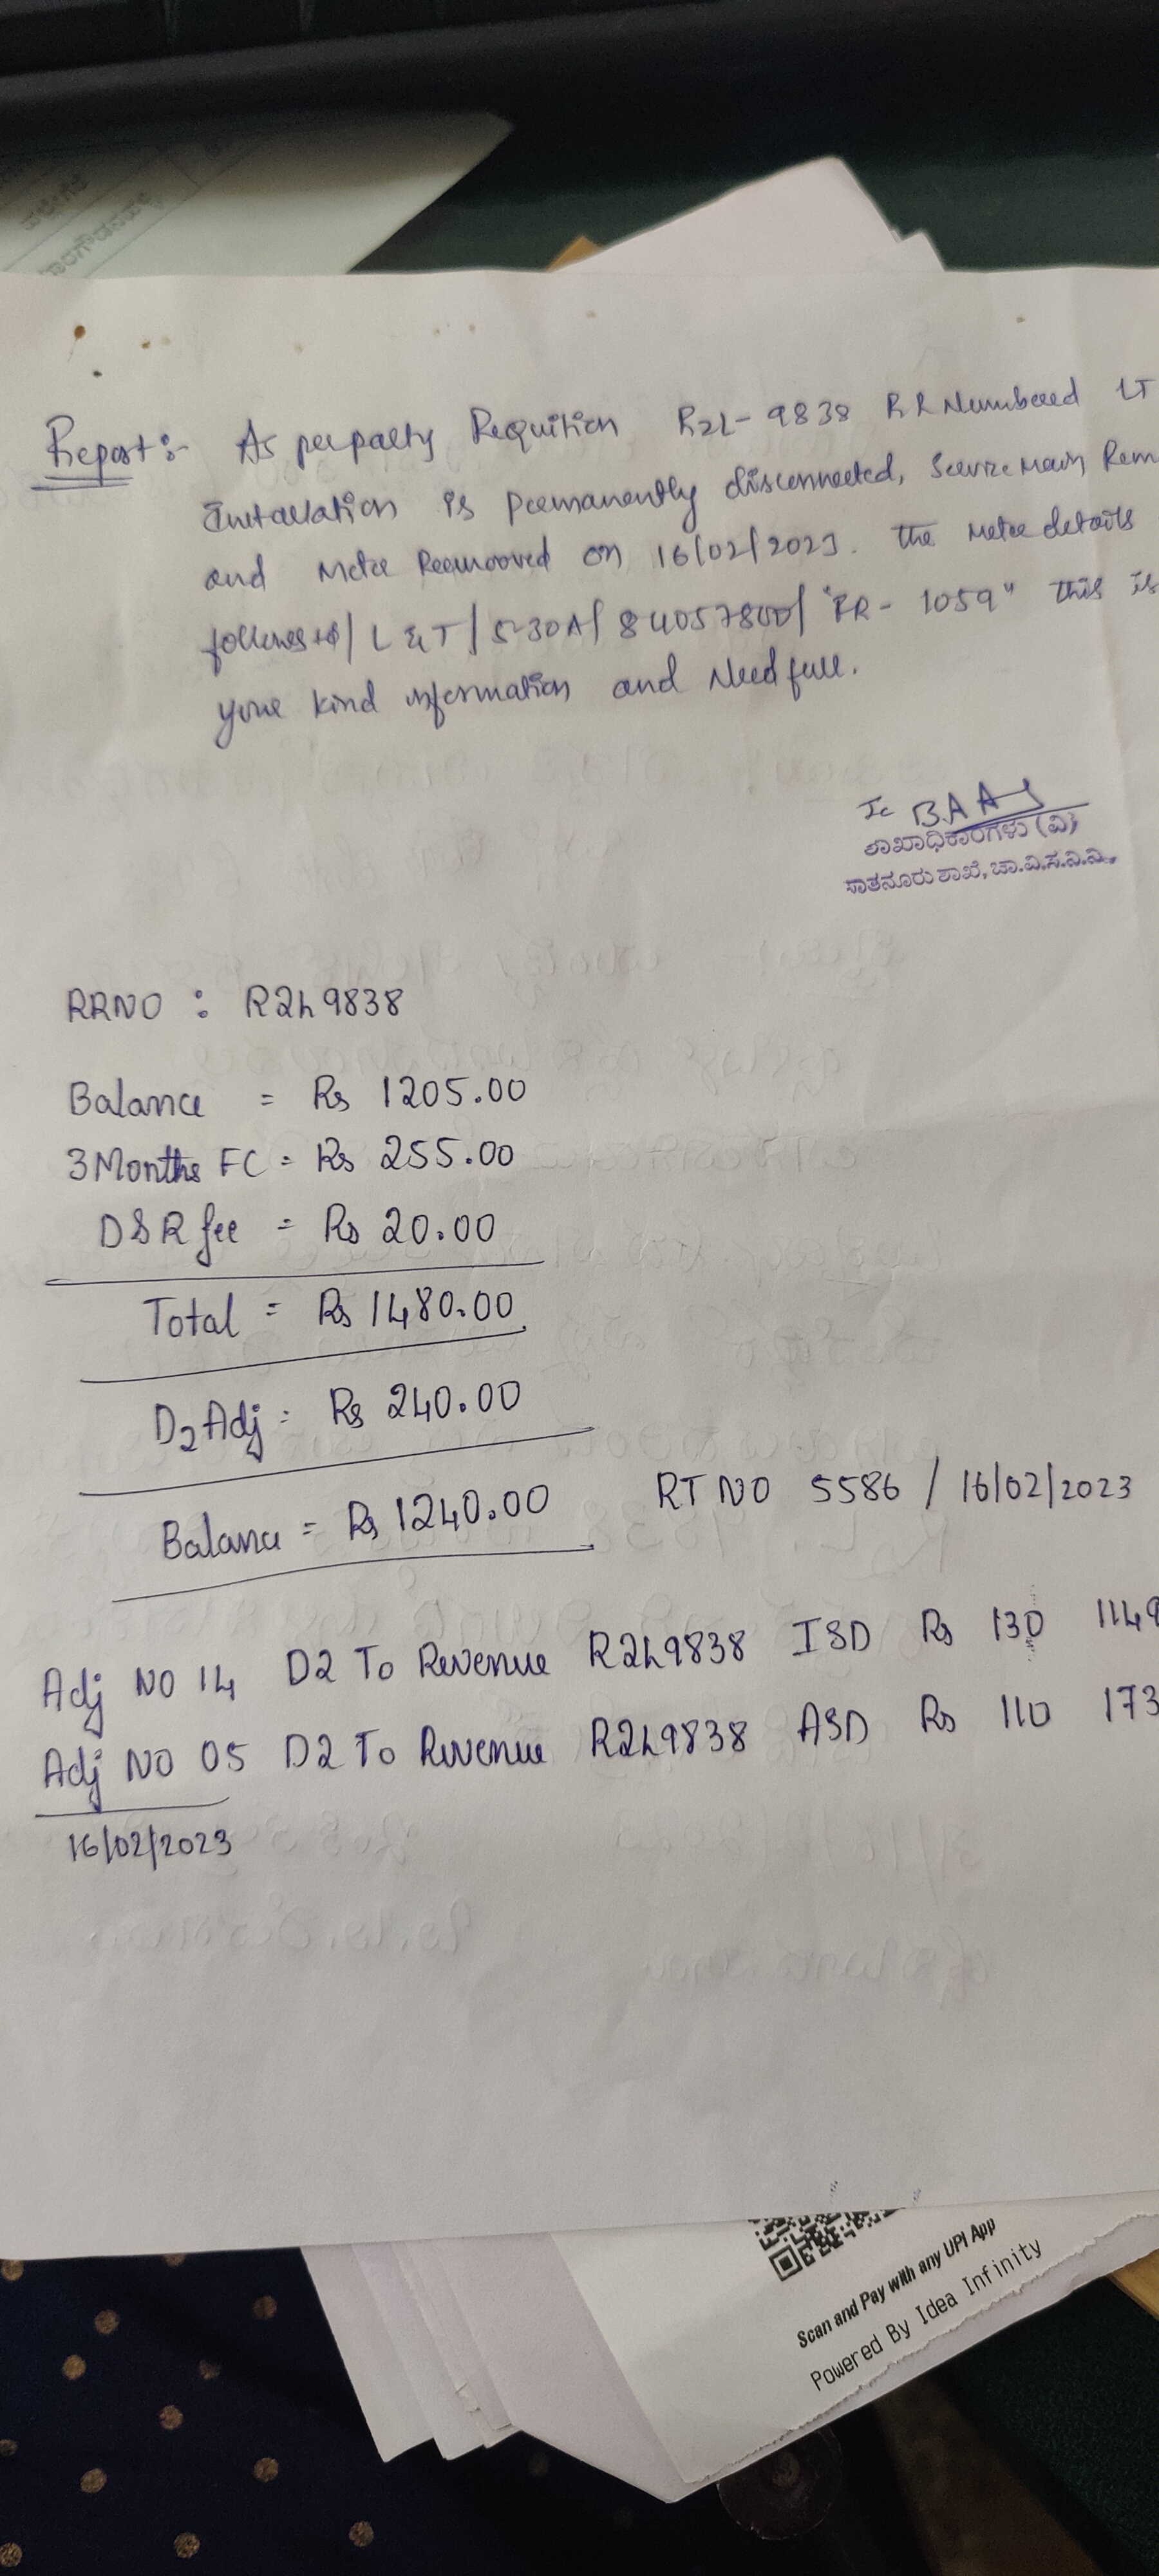 Report:- As per party Requition R2L-9838 RR Numbered LT
Installation is permanently disconnected, Service Main Rem
and Meter Reemooved on 16/02/2023. The Meter details
follows+s/ L&T/5-30A/84057800/"FR-1059" This is
your kind information and Needfull.
Ic B.A A
ಶಾಖಾಧಿಕಾರಿಗಳು (ವಿ)
ಸಾತನೂರು ಶಾಖೆ, ಚಾ.ವಿ.ಸ.ನಿ.ನಿ.,
RRNO : R2L9838
Balance = Rs 1205.00
3 Months FC = Rs 255.00
D&R fee = Rs 20.00
Total = Rs 1480.00
D2 Adj = Rs 240.00
Balance = Rs 1240.00 RT NO 5586 / 16/02/2023
Adj NO 14 D2 To Revenue R2L9838 ISD Rs 130 1149
Adj NO 05 D2 To Revenue R2L9838 ASD Rs 110 173
16/02/2023
Scan and Pay with any UPI App
Powered By Idea Infinity